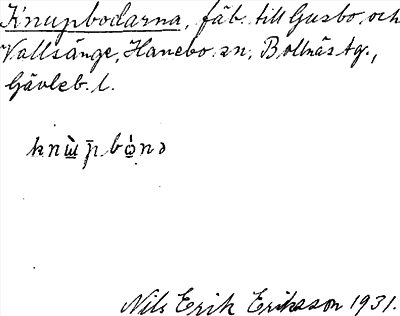 Knupbodarna, fäb. till Gusbo, och
Vallsänge, Hanebo sn, Bollnäs tg.,
Gävleb. l.
Nils Erik Eriksson 1931.